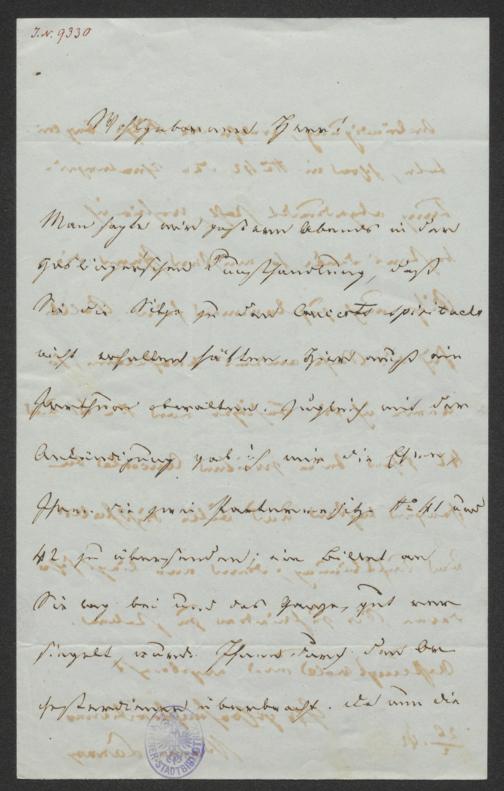 J.N. 9330
Wohlgeborner Herr!
Man sagte mir gestern Abends in der
Haslingerschen Kunsthandlung, daß
Sie die Sitze zu den Concerts spirituels
nicht erhalten hätten. Hier muß ein
Irrthum obwalten. Zugleich mit der
Ankündigung gab ich mir die Ehre
Ihnen die zwei Parterresitze No 41 und
42 zu übersenden; ein Billet an
Sie lag bei und das Ganze, gut ver-
siegelt wurde Ihnen durch den Or-
chesterdiener überbracht. Da nun die